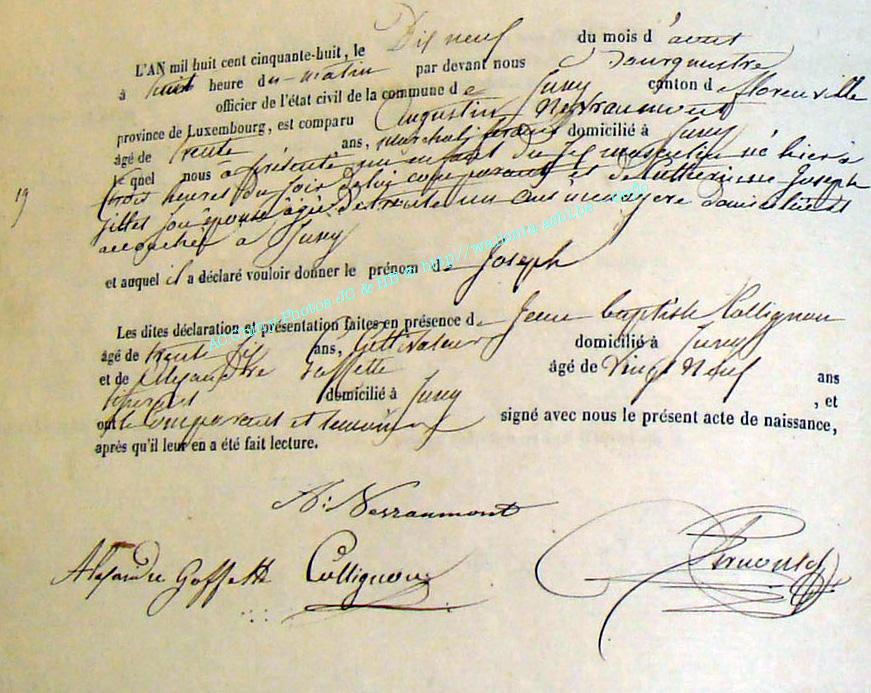 L'AN mil huit cent cinquante-huit, le Dix neuf du mois d'aout
à huit heure du matin par devant nous Bourgmestre
officier de l'état civil de la commune de Juny canton de florenville
province de Luxembourg, est comparu Augustin Nerraumont
âgé de trente ans, marechal ferrant domicilié à Juny
lequel nous a présenté un enfant du sexe masculin né hier à
trois heures du soir de lui comparant et de Catherinne Joseph
Gilles son épouse âgée de trente un ans menagere domiciliée et
accouchée à Juny
et auquel il a déclaré vouloir donner le prénom de Joseph
Les dites déclaration et présentation faites en présence de Jean baptiste Collignon
âgé de trente dix ans, Cultivateur domicilié à Juny
et de Alexandre Goffette âgé de vingt neuf ans
domicilié à Juny , et
ont le Comparant et temoins signé avec nous le présent acte de naissance,
après qu'il leur en a été fait lecture.
19
A: Nerraumont
Alexandre Goffette Collignon
ACtes non Photos JC & HB & http//wallonia-asbl.be